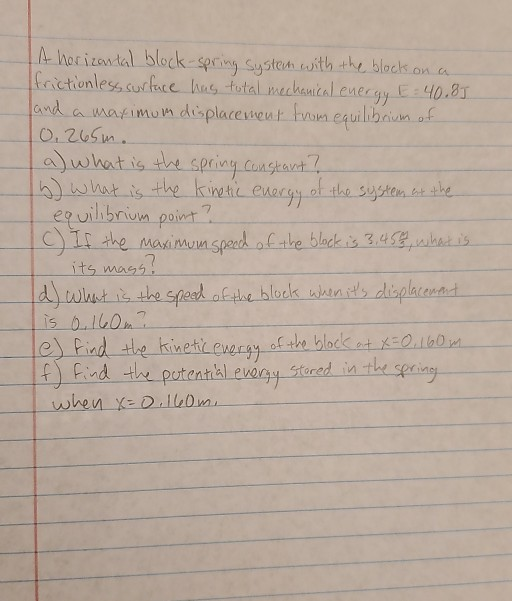 A horizontal block-spring system with the block on a
frictionless surface has total mechanical energy E = 40.8J
and a maximum displacement from equilibrium of
0.265m.
a) what is the spring constant?
b) what is the kinetic energy of the system at the
equilibrium point?
C) If the maximum speed of the block is 3.45 m/s, what is
its mass?
d) what is the speed of the block when it's displacement
is 0.160m?
e) Find the kinetic energy of the block at x=0.160m
f) find the potential energy stored in the spring
when x=0.160m.